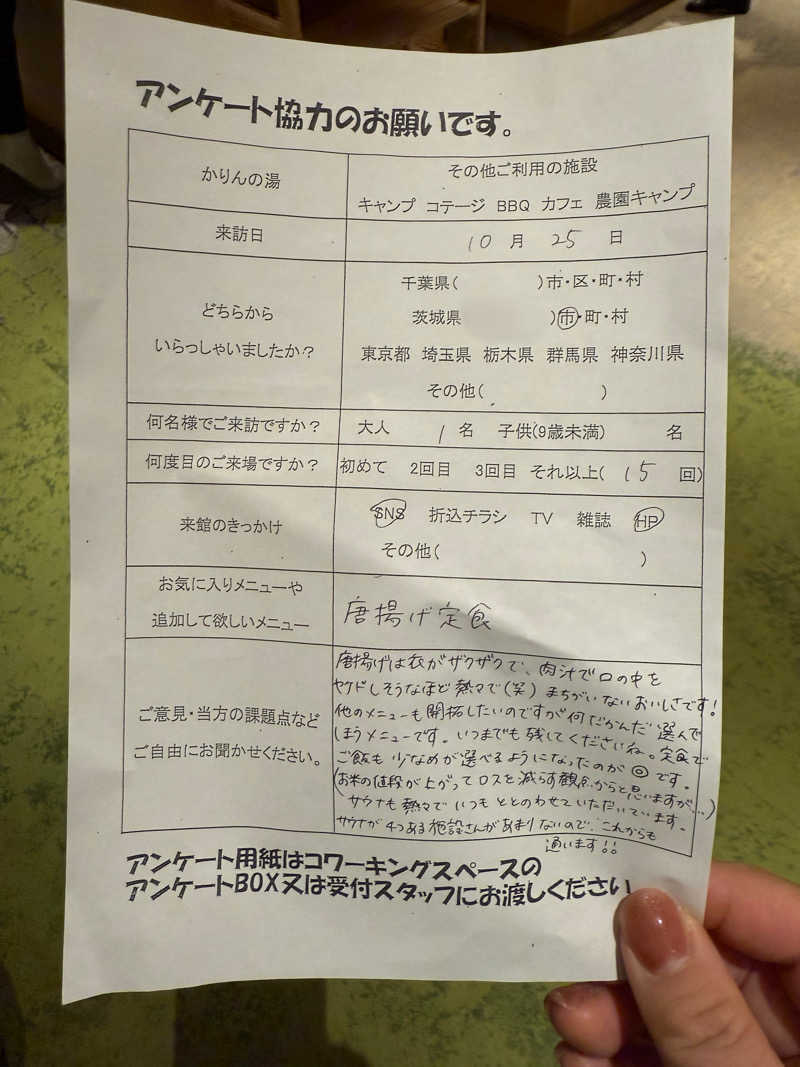 アンケート協力のお願いです。
かりんの湯
その他ご利用の施設
キャンプ コテージ BBQ カフェ 農園キャンプ
来訪日
10 月 25 日
どちらから
いらっしゃいましたか?
千葉県( )市・区・町・村
茨城県 )市・町・村
東京都 埼玉県 栃木県 群馬県 神奈川県
その他( )
何名様でご来訪ですか?
大人 1 名 子供(9歳未満) 名
何度目のご来場ですか?
初めて 2回目 3回目 それ以上( 15 回)
来館のきっかけ
SNS 折込チラシ TV 雑誌 HP
その他( )
お気に入りメニューや
追加して欲しいメニュー
唐揚げ定食
ご意見・当方の課題点など
ご自由にお聞かせください。
唐揚げは衣がザクザクで、肉汁で口の中を
ヤケドしそうなほど熱々で(笑) まちがいないおいしさです!
他のメニューも開拓したいのですが何だかんだ選んで
しまうメニューです。いつまでも残してくださいね。定食で
ご飯も少なめが選べるようになったのが◎です。
(お米の値段が上がってロスを減らす観念からと思いますが…)
サウナも熱々でいつもととのわせていただいています。
サウナが4つある施設さんがあまりないので、これからも
通います!!
アンケート用紙はコワーキングスペースの
アンケートBOX又は受付スタッフにお渡しください